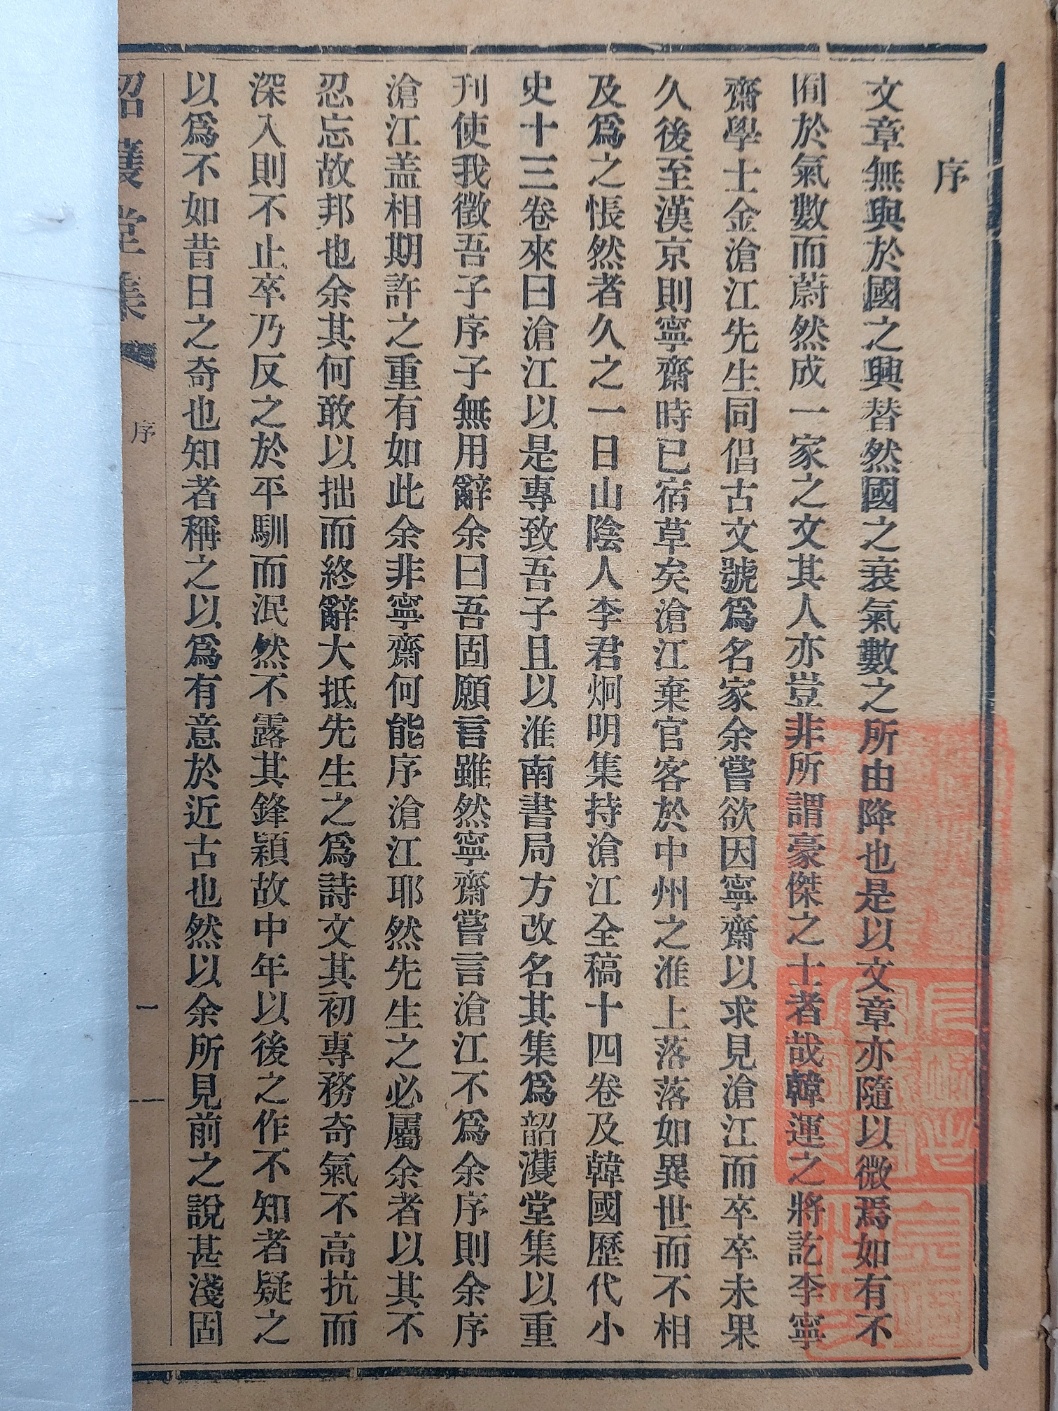 序
文章無與於國之興替然國之衰氣數之所由降也是以文章亦隨以微焉如有不
囿於氣數而蔚然成一家之文其人亦豈非所謂豪傑之士者哉韓運之將訖李寧
齋學士金滄江先生同倡古文號爲名家余嘗欲因寧齋以求見滄江而卒卒未果
久後至漢京則寧齋時已宿草矣滄江棄官客於中州之淮上落落如異世而不相
及爲之悵然者久之一日山陰人李君炯明集持滄江全稿十四卷及韓國歷代小
史十三卷來曰滄江以是專致吾子且以淮南書局方改名其集爲韶濩堂集以重
刊使我徵吾子序子無用辭余曰吾固願言雖然寧齋嘗言滄江不爲余序則余序
滄江盖相期許之重有如此余非寧齋何能序滄江耶然先生之必屬余者以其不
忍忘故邦也余其何敢以拙而終辭大抵先生之爲詩文其初專務奇氣不高抗而
深入則不止卒乃反之於平馴而泯然不露其鋒穎故中年以後之作不知者疑之
以爲不如昔日之奇也知者稱之以爲有意於近古也然以余所見前之說甚淺固
韶濩堂集
序
一